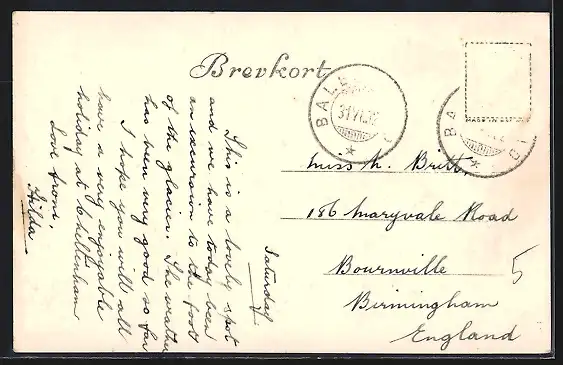 Brevkort
BAL
31 VII
BA
Saturday
This is a lovely spot
and we have today been
an excursion to the foot
of the glacier. The weather
has been very good so far
I hope you will all
have a very enjoyable
holiday at Cheltenham
Love from,
Hilda
Miss N. Britt,
186 Maryvale Road
Bournville
Birmingham
England
5